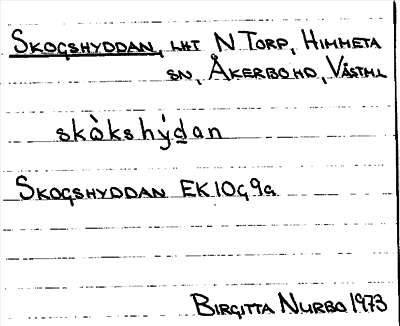 SKOGSHYDDAN, LHT N TORP, HIMMETA
SN, ÅKERBO HD, VÄSTML
skòkshýdan
SKOGSHYDDAN EK 10G9a
BIRGITTA NURBO 1973